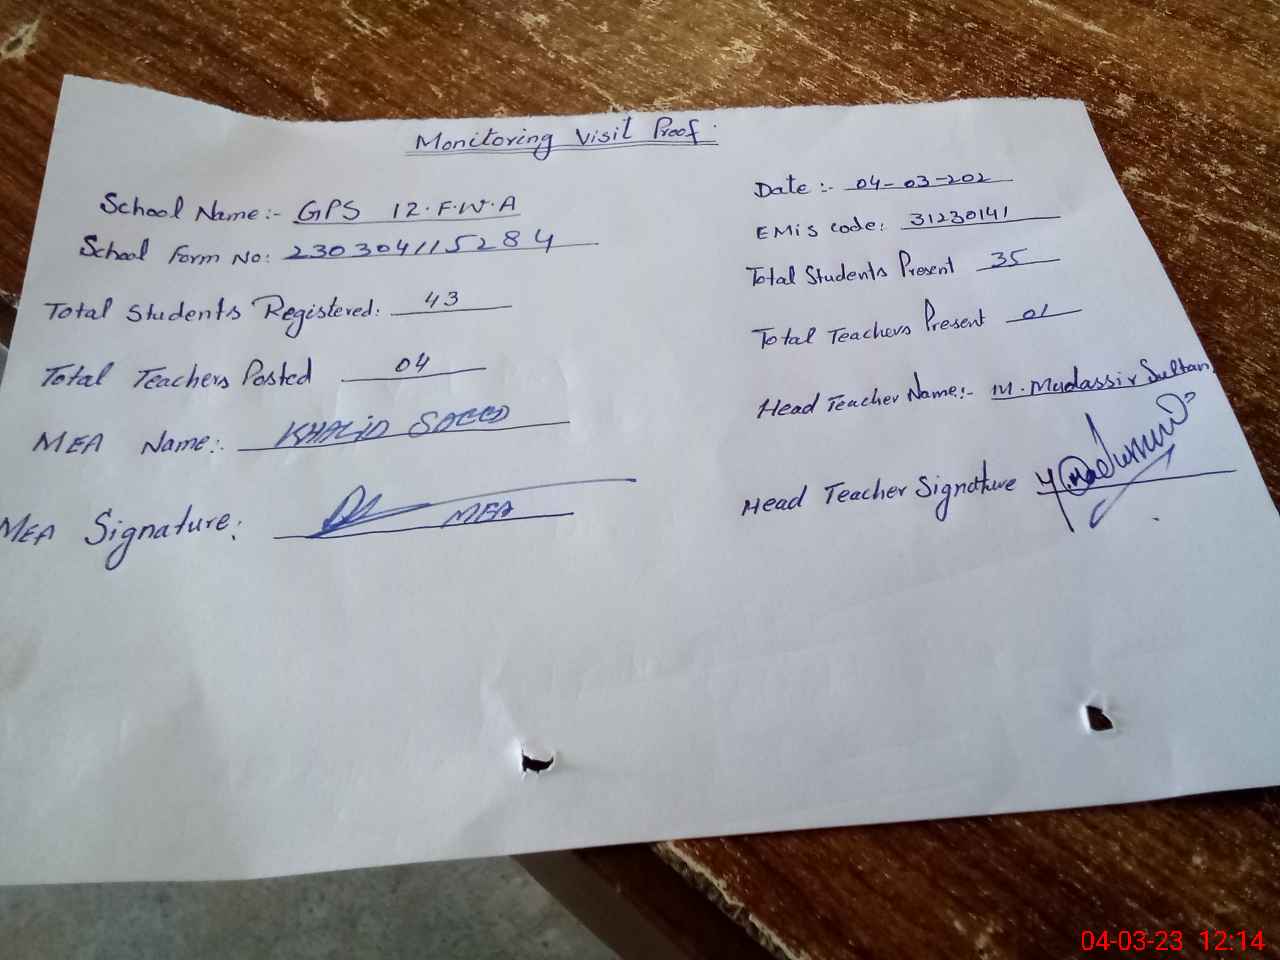 Monitoring Visit Proof:
School Name:- GPS 12.F.W.A
Date:- 04-03-202
School Form No: 230304115284
EMiS code: 31230141
Total Students Registered: 43
Total Students Present 35
Total Teachers Posted 04
Total Teachers Present 01
MEA Name:- KHALID SAEED
Head Teacher Name:- M. Mudassir Sultan
MEA Signature: MEA
Head Teacher Signature
04-03-23 12:14